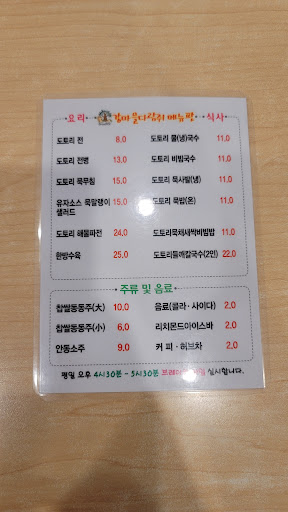 요 리 메뉴판 식 사
도토리 전 8.0 도토리 물(냉)국수 11.0
도토리 전병 13.0 도토리 비빔국수 11.0
도토리 묵무침 15.0 도토리 묵사발(냉) 11.0
유자소스 묵말랭이 샐러드 15.0 도토리 묵밥(온) 11.0
도토리 해물파전 24.0 도토리묵채새싹비빔밥 11.0
한방수육 25.0 도토리들깨칼국수(2인) 22.0
주류 및 음료
찹쌀동동주(大) 10.0 음료(콜라 · 사이다) 2.0
찹쌀동동주(小) 6.0 리치몬드아이스바 2.0
안동소주 9.0 커 피 · 허브차 2.0
평일 오후 4시30분 - 5시30분 실시합니다.